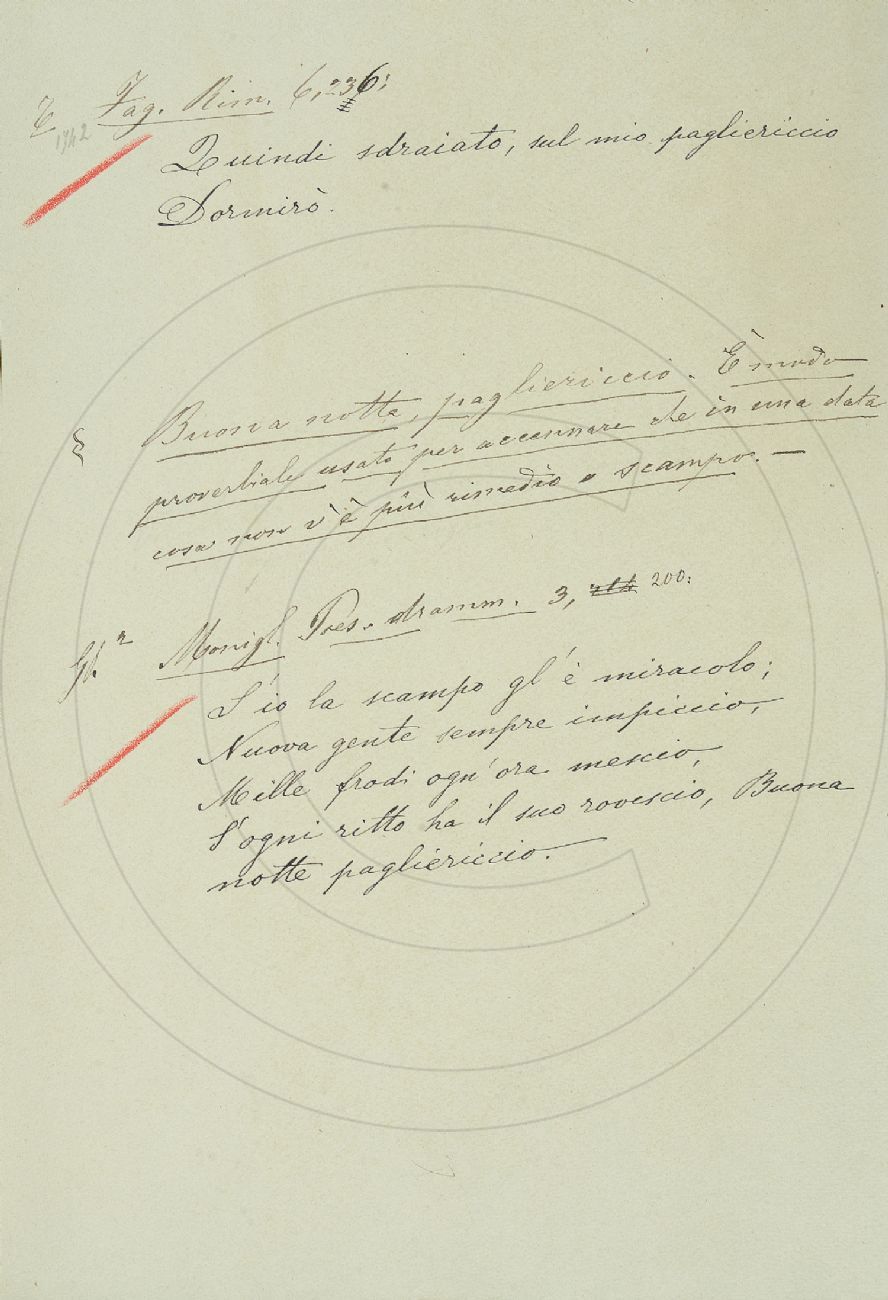 T Fag. Rim. 6, 236:
1942
Quindi sdraiato, sul mio pagliericcio
Dormirò.
§ Buona notte, pagliericcio. È modo
proverbiale usato per accennare che in una data
cosa non v'è più rimedio o scampo. —
Monigl. Poes. dramm. 3, 200:
S'io la scampo gl'è miracolo;
Nuova gente sempre impiccio,
Mille frodi ogn'ora mescio,
S'ogni ritto ha il suo rovescio, Buona
notte pagliericcio. —